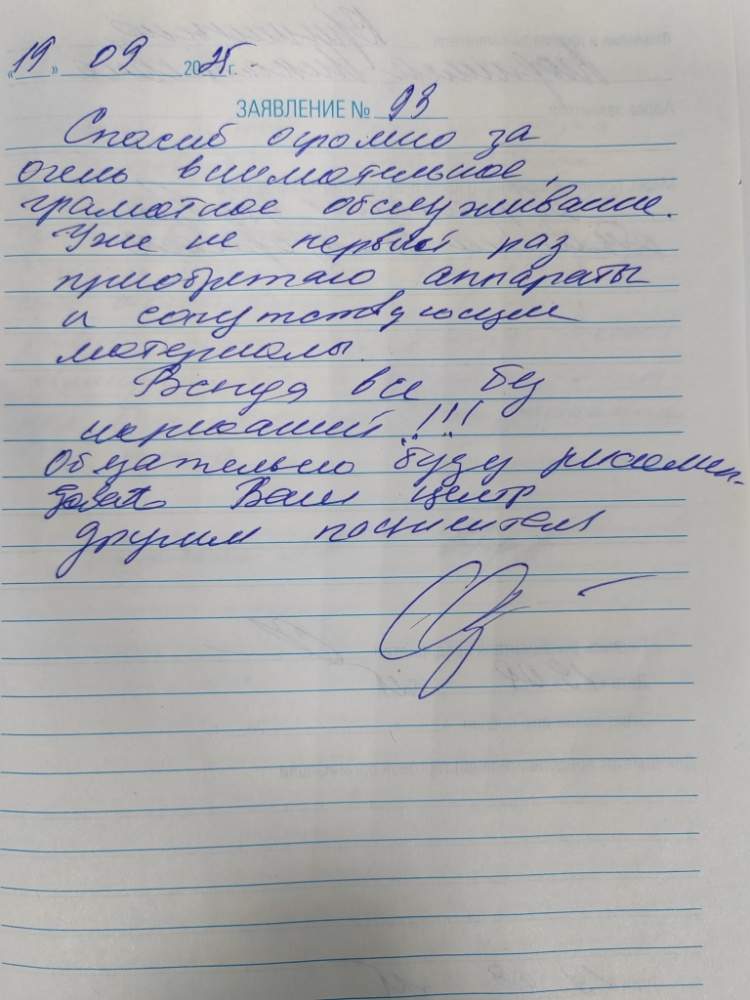 «19» 09 2025 г.
ЗАЯВЛЕНИЕ № 93
Спасиб огромно за
очень внимательное,
грамотное обслуживание.
Уже не первый раз
приобретаю аппараты
и сопутствующие
материалы.
Всегда все без
нареканий!!!
Обязательно буду рекомен-
довать Ваш центр
другим посетителям